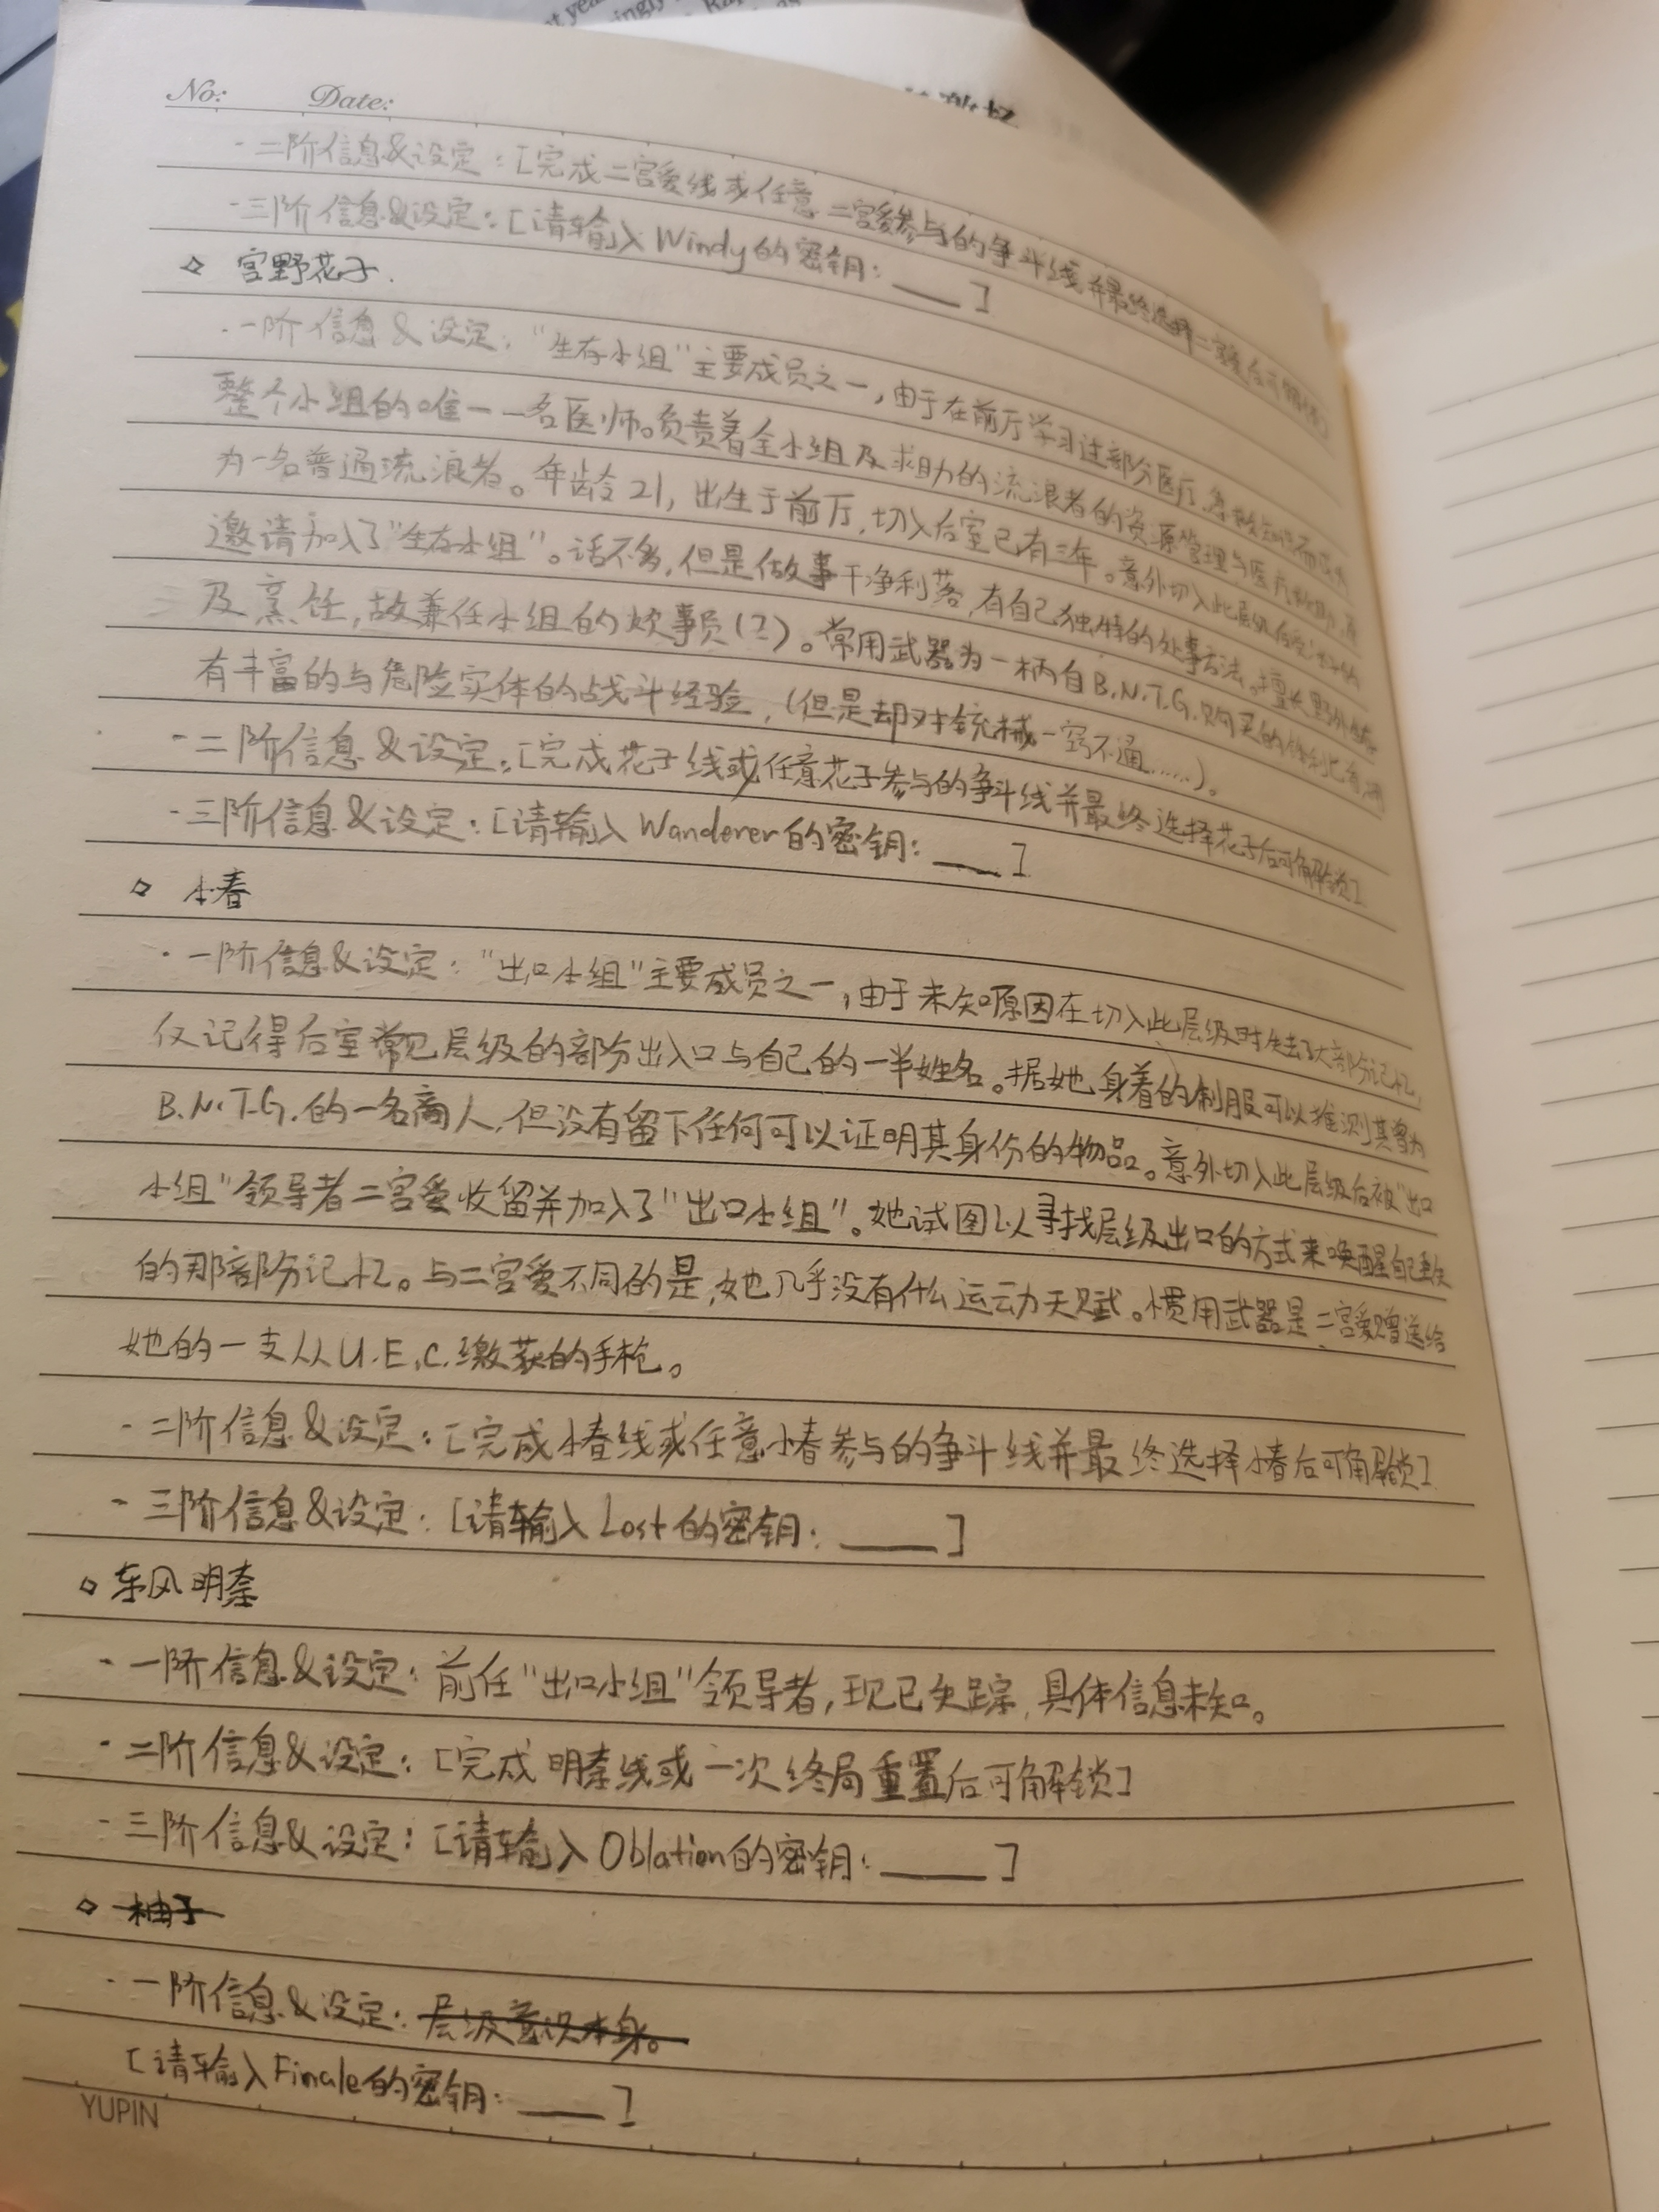 No:      Date:
- 二阶信息&设定：[完成二宫爱线或任意二宫爱参与的争斗线并最终选择二宫爱后可解锁]
- 三阶信息&设定：[请输入Windy的密钥：____]
◇ 宫野花子.
· 一阶信息&设定："生存小组"主要成员之一,由于在前厅学习过部分医疗、急救知识而成为
整个小组的唯一一名医师。负责着全小组及求助的流浪者的资源管理与医疗救助,
为一名普通流浪者。年龄21,出生于前厅,切入后室已有三年。意外切入此层级后受
邀请加入了"生存小组"。话不多,但是做事干净利落,有自己独特的处事方法。擅长野外生存
及烹饪,故兼任小组的炊事员(?)。常用武器为一柄自B.N.T.G.购买的
有丰富的与危险实体的战斗经验,(但是却对铳械一窍不通……)。
- 二阶信息&设定：[完成花子线或任意花子参与的争斗线并最终选择花子后可解锁]
- 三阶信息&设定：[请输入Wanderer的密钥：____]
◇ 小春
· 一阶信息&设定："出口小组"主要成员之一,由于未知原因在切入此层级时失去了大部分记忆,
仅记得后室常见层级的部分出入口与自己的一半姓名。据她身着的制服可以推测其曾为
B.N.T.G.的一名商人,但没有留下任何可以证明其身份的物品。意外切入此层级后被"出口
小组"领导者二宫爱收留并加入了"出口小组"。她试图以寻找层级出口的方式来唤醒自己丢失
的那部分记忆。与二宫爱不同的是,她几乎没有什么运动天赋。惯用武器是二宫爱赠送给
她的一支从U.E.C.缴获的手枪。
- 二阶信息&设定：[完成小春线或任意小春参与的争斗线并最终选择小春后可解锁]
- 三阶信息&设定：[请输入Lost的密钥：____]
◇ 东风明奈
- 一阶信息&设定：前任"出口小组"领导者,现已失踪,具体信息未知。
· 二阶信息&设定：[完成明奈线或一次终局重置后可解锁]
- 三阶信息&设定：[请输入Oblation的密钥：____]
◇ 柚子
· 一阶信息&设定：层级意识本身。
[请输入Finale的密钥：____]
YUPIN